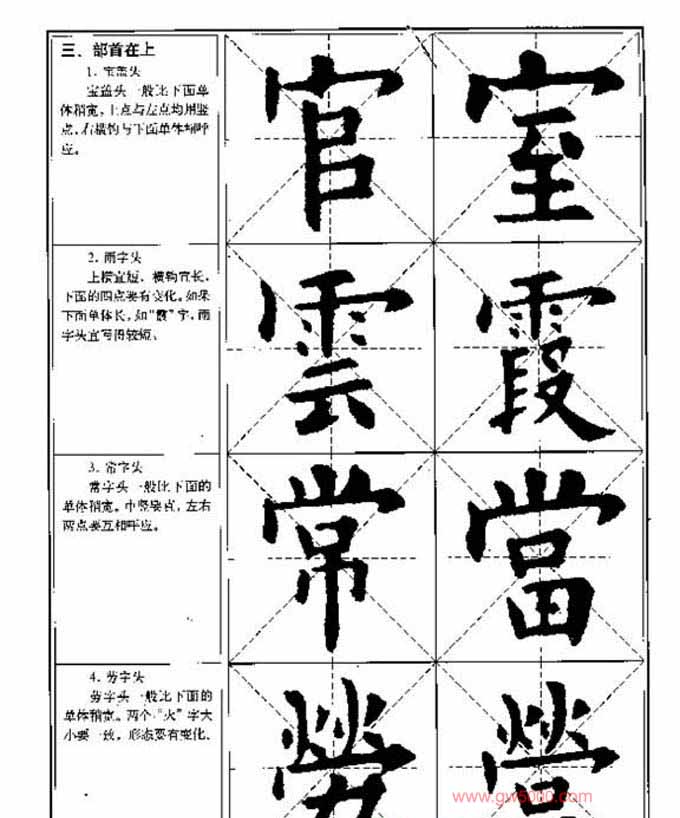 三、部首在上
1. 宝盖头
宝盖头一般比下面单
体稍宽，上点与左点均用竖
点，右横钩与下面单体相呼
应。
官 室
2. 雨字头
上横宜短，横钩宜长，
下面的四点要有变化。如果
下面单体长，如“霞”字，雨
字头宜写得较短。
雲 霞
3. 常字头
常字头一般比下面的
单体稍宽。中竖要点，左右
两点要互相呼应。
常 當
4. 劳字头
劳字头一般比下面的
单体稍宽。两个“火”字大
小要一致，形态要有变化。
勞 營
www.gw5000.com